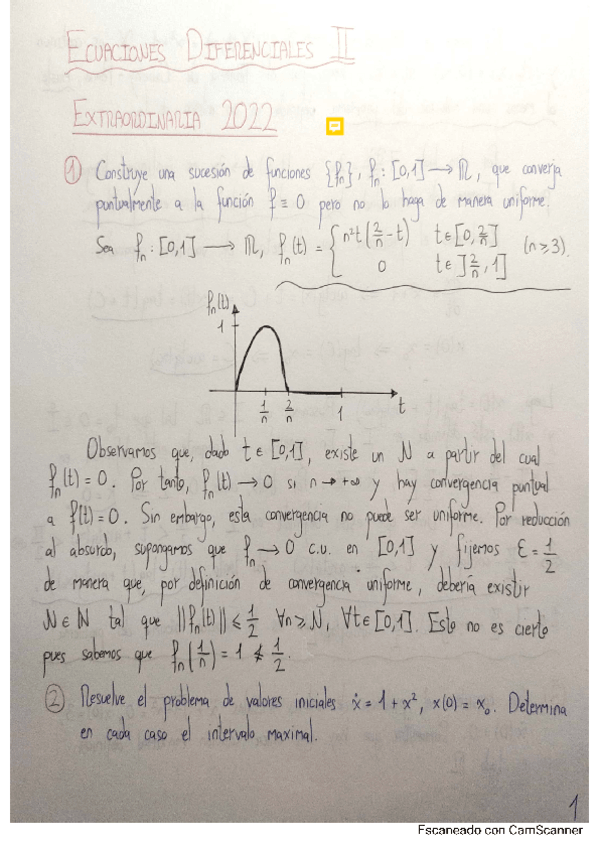 ECUACIONES DIFERENCIALES II
EXTRAORDINARIA 2022
① Construye una sucesión de funciones {fₙ}, fₙ: [0,1] → ℝ, que converja
puntualmente a la función f ≡ 0 pero no lo haga de manera uniforme.
Sea fₙ: [0,1] → ℝ, fₙ(t) = { n²t(2/n - t) t∈[0, 2/n] (n≥3).
0 t∈]2/n, 1]
fₙ(t)
1
1/n 2/n 1 t
Observamos que, dado t∈[0,1], existe un N a partir del cual
fₙ(t) = 0. Por tanto, fₙ(t) → 0 si n → +∞ y hay convergencia puntual
a f(t) = 0. Sin embargo, esta convergencia no puede ser uniforme. Por reducción
al absurdo, supongamos que fₙ → 0 c.u. en [0,1] y fijemos ε = 1/2
de manera que, por definición de convergencia uniforme, debería existir
N∈ℕ tal que ||fₙ(t)|| ≤ 1/2 ∀n≥N, ∀t∈[0,1]. Esto no es cierto
pues sabemos que fₙ(1/n) = 1 ≰ 1/2.
② Resuelve el problema de valores iniciales ẋ = 1 + x², x(0) = x₀. Determina
en cada caso el intervalo maximal.
1
Escaneado con CamScanner